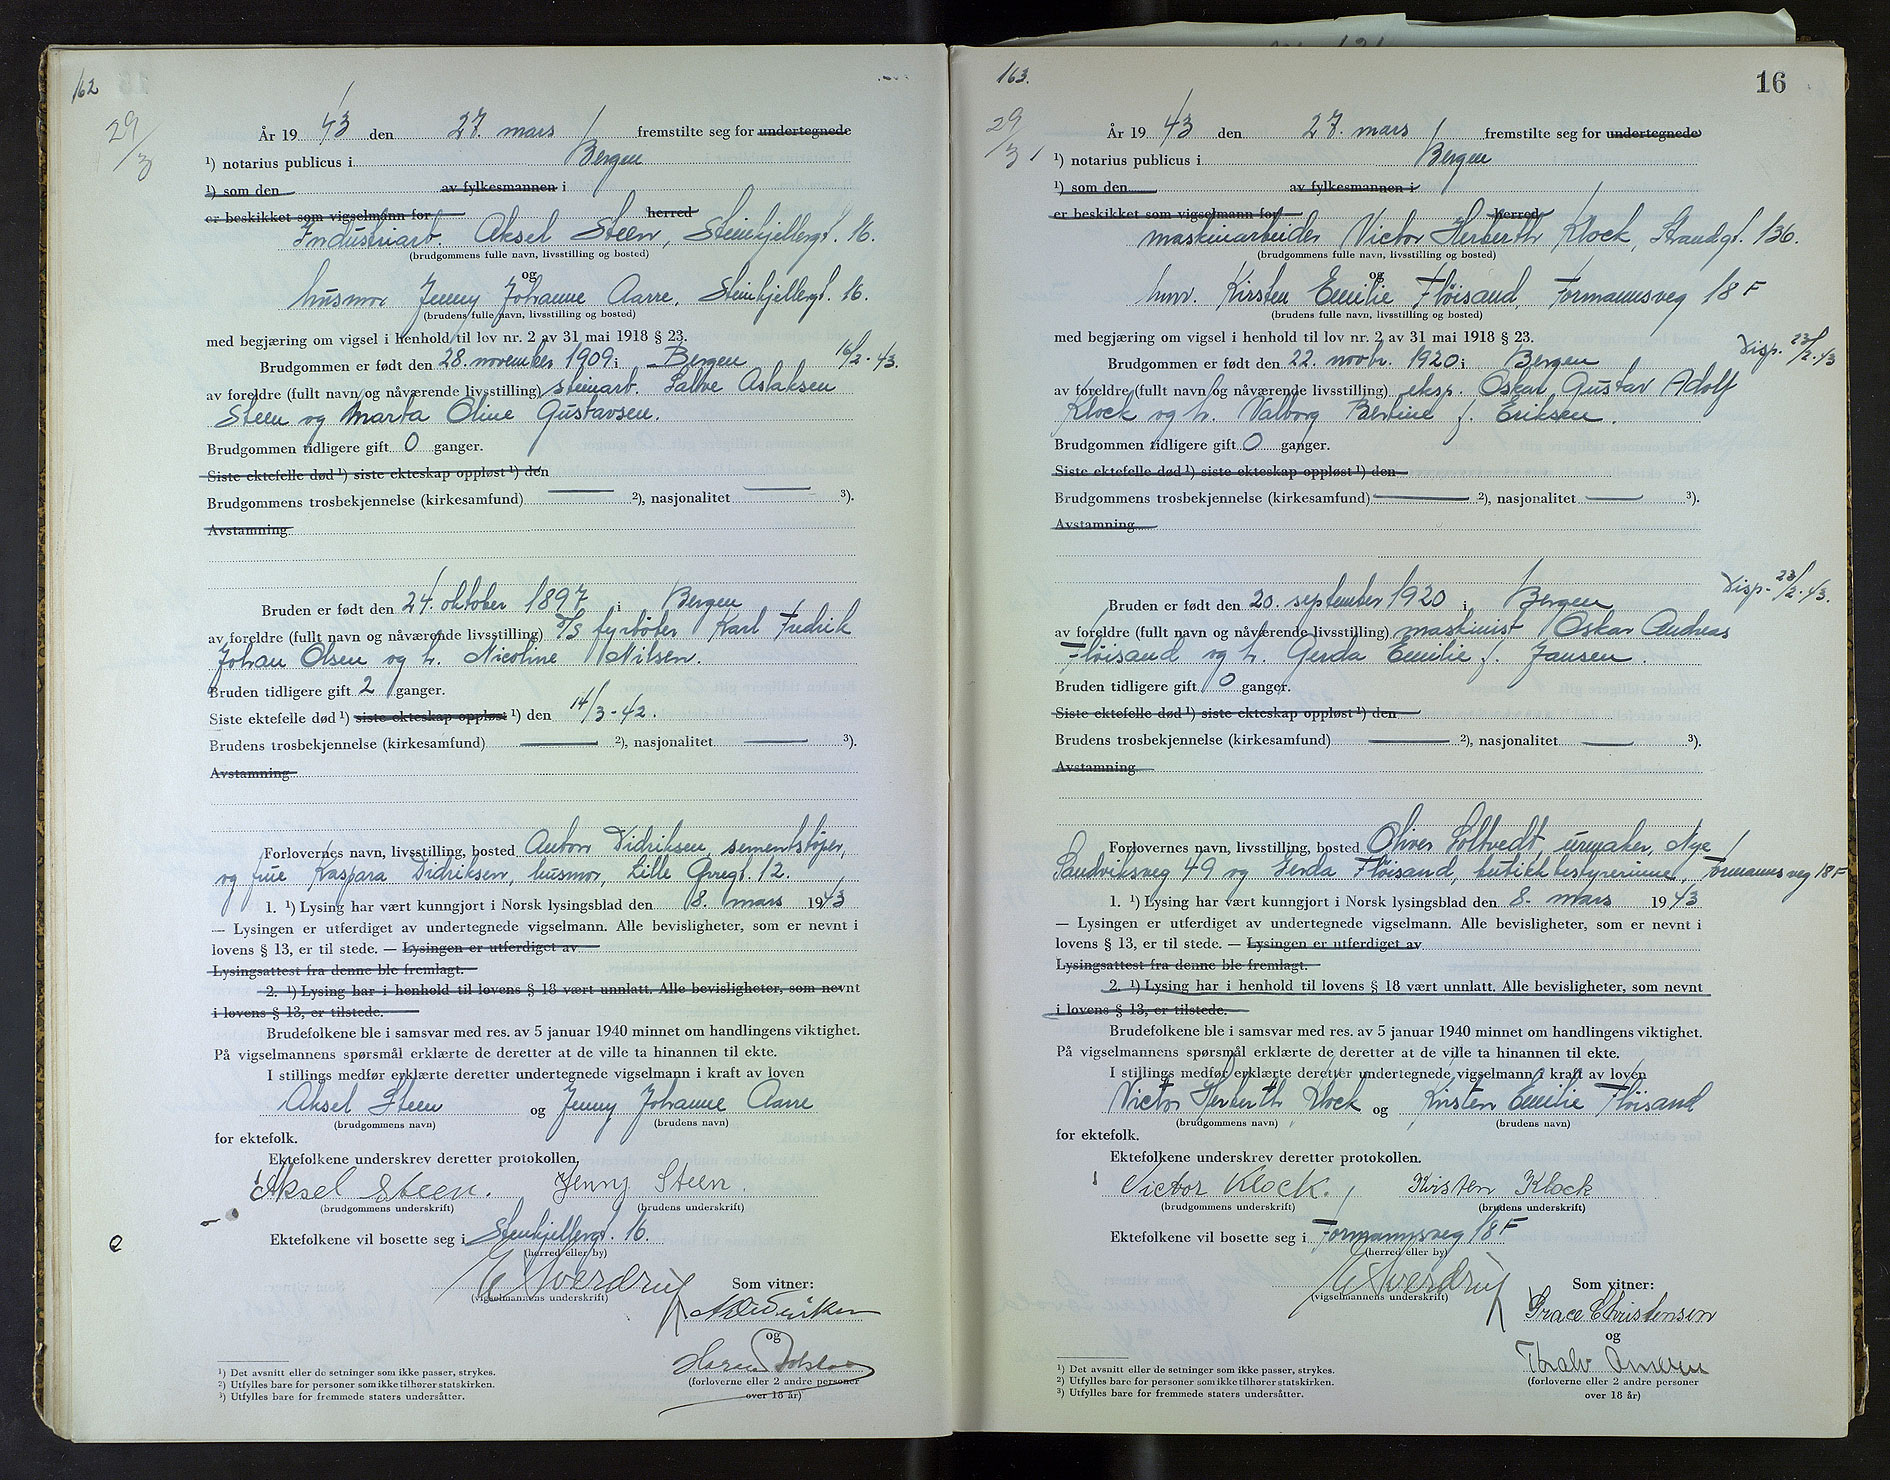 162
29/3
År 1943 den 27. mars fremstilte seg for undertegnede
¹) notarius publicus i Bergen
¹) som den av fylkesmannen i
er beskikket som vigselmann for herred
Industriarb. Aksel Steen, Steinkjellergt. 16.
(brudgommens fulle navn, livsstilling og bosted)
og
husmor Jenny Johanne Aarre, Steinkjellergt. 16.
(brudens fulle navn, livsstilling og bosted)
med begjæring om vigsel i henhold til lov nr. 2 av 31 mai 1918 § 23.
Brudgommen er født den 28. november 1909 i Bergen 16/2-43.
av foreldre (fullt navn og nåværende livsstilling) steinarb. Salve Aslaksen
Steen og Marta Oline Gustavsen.
Brudgommen tidligere gift 0 ganger.
Siste ektefelle død ¹) siste ekteskap oppløst ¹) den
Brudgommens trosbekjennelse (kirkesamfund) — ²), nasjonalitet — ³).
Avstamning
Bruden er født den 24. oktober 1897 i Bergen
av foreldre (fullt navn og nåværende livsstilling) D/S fyrbøter Karl Fredrik
Johan Olsen og h. Nicoline Nilsen.
Bruden tidligere gift 2 ganger.
Siste ektefelle død ¹) siste ekteskap oppløst ¹) den 14/3-42.
Brudens trosbekjennelse (kirkesamfund) — ²), nasjonalitet — ³).
Avstamning
Forlovernes navn, livsstilling, bosted Anton Didriksen, sementstøper,
og frue Kaspara Didriksen, husmor, Lille Øvregt. 12.
1. ¹) Lysing har vært kunngjort i Norsk lysingsblad den 8. mars 1943
— Lysingen er utferdiget av undertegnede vigselmann. Alle bevisligheter, som er nevnt i
lovens § 13, er til stede. — Lysingen er utferdiget av
Lysingsattest fra denne ble fremlagt.
2. ¹) Lysing har i henhold til lovens § 18 vært unnlatt. Alle bevisligheter, som er nevnt
i lovens § 13, er tilstede.
Brudefolkene ble i samsvar med res. av 5 januar 1940 minnet om handlingens viktighet.
På vigselmannens spørsmål erklærte de deretter at de ville ta hinannen til ekte.
I stillings medfør erklærte deretter undertegnede vigselmann i kraft av loven
Aksel Steen og Jenny Johanne Aarre
(brudgommens navn) (brudens navn)
for ektefolk.
Ektefolkene underskrev deretter protokollen.
Aksel Steen. Jenny Steen.
(brudgommens underskrift) (brudens underskrift)
Ektefolkene vil bosette seg i Steinkjellergt. 16.
(herred eller by)
E Sverdrup
(vigselmannens underskrift)
Som vitner:
og
(forloverne eller 2 andre personer
over 18 år)
¹) Det avsnitt eller de setninger som ikke passer, strykes.
²) Utfylles bare for personer som ikke tilhører statskirken.
³) Utfylles bare for fremmede staters undersåtter.
163.
16
29/3
År 1943 den 27. mars fremstilte seg for undertegnede
¹) notarius publicus i Bergen
¹) som den av fylkesmannen i
er beskikket som vigselmann for herred
maskinarbeider Victor Herberth Klock, Strandgt. 136.
(brudgommens fulle navn, livsstilling og bosted)
og
hmr. Kirsten Emilie Fløisand, Formannsveg 18 F
(brudens fulle navn, livsstilling og bosted)
med begjæring om vigsel i henhold til lov nr. 2 av 31 mai 1918 § 23.
Brudgommen er født den 22. novbr. 1920 i Bergen Disp. 23/2-43
av foreldre (fullt navn og nåværende livsstilling) eksp. Oskar Gustav Adolf
Klock og h. Valborg Bertine f. Eriksen.
Brudgommen tidligere gift 0 ganger.
Siste ektefelle død ¹) siste ekteskap oppløst ¹) den
Brudgommens trosbekjennelse (kirkesamfund) — ²), nasjonalitet — ³).
Avstamning
Bruden er født den 20. september 1920 i Bergen Disp. 23/2-43.
av foreldre (fullt navn og nåværende livsstilling) maskinist Oskar Andreas
Fløisand og h. Gerda Emilie f. Jansen.
Bruden tidligere gift 0 ganger.
Siste ektefelle død ¹) siste ekteskap oppløst ¹) den
Brudens trosbekjennelse (kirkesamfund) — ²), nasjonalitet — ³).
Avstamning
Forlovernes navn, livsstilling, bosted Oliver Soltvedt, urmaker, Nye
Sandviksveg 49 og Gerda Fløisand, butikkbestyrerinne, Formannsveg 18 F
1. ¹) Lysing har vært kunngjort i Norsk lysingsblad den 8. mars 1943
— Lysingen er utferdiget av undertegnede vigselmann. Alle bevisligheter, som er nevnt i
lovens § 13, er til stede. — Lysingen er utferdiget av
Lysingsattest fra denne ble fremlagt.
2. ¹) Lysing har i henhold til lovens § 18 vært unnlatt. Alle bevisligheter, som nevnt
i lovens § 13, er tilstede.
Brudefolkene ble i samsvar med res. av 5 januar 1940 minnet om handlingens viktighet.
På vigselmannens spørsmål erklærte de deretter at de ville ta hinannen til ekte.
I stillings medfør erklærte deretter undertegnede vigselmann i kraft av loven
Victor Herberth Klock og Kirsten Emilie Fløisand
(brudgommens navn) (brudens navn)
for ektefolk.
Ektefolkene underskrev deretter protokollen.
Victor Klock. Kirsten Klock
(brudgommens underskrift) (brudens underskrift)
Ektefolkene vil bosette seg i Formannsveg 18 F
(herred eller by)
E Sverdrup
(vigselmannens underskrift)
Som vitner:
Grace Christensen
og
(forloverne eller 2 andre personer
over 18 år)
¹) Det avsnitt eller de setninger som ikke passer, strykes.
²) Utfylles bare for personer som ikke tilhører statskirken.
³) Utfylles bare for fremmede staters undersåtter.